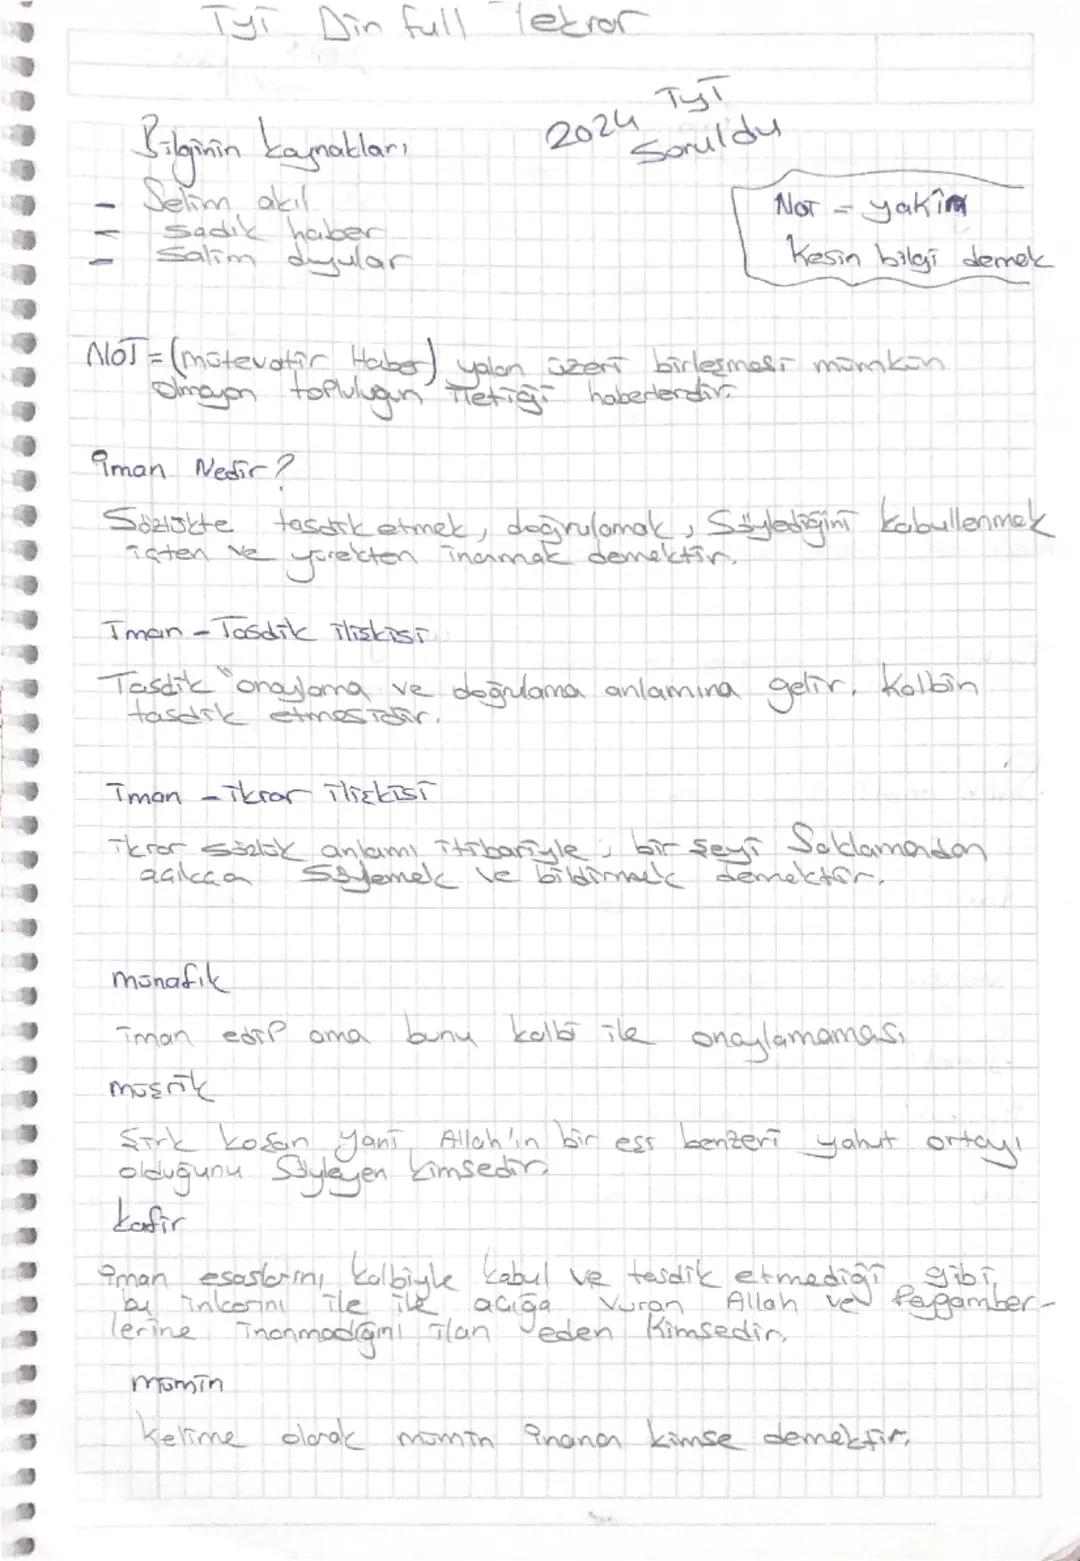 Tyt Din full Tekrar
Tyt
2024 Soruldu
Bilginin kaynakları
- Selim akıl
- sadık haber
- Salim duyular
Not = yakîn
Kesin bilgi demek
NOT = (mütevatir Haber) yalan üzeri birleşmesi mümkün
olmayan topluluğun ilettiği haberlerdir.
İman Nedir?
Sözlükte tasdik etmek, doğrulamak, Söylediğini kabullenmek
içten ve yürekten inanmak demektir.
İman - Tasdik ilişkisi
Tasdik "onaylama ve doğrulama anlamına gelir. Kalbin
tasdik etmesidir.
İman - ikrar ilişkisi
ikrar sözlük anlamı itibariyle; bir şeyi Saklamandan
açıkça Söylemek ve bildirmek demektir.
münafık
iman edip ama bunu kalbi ile onaylamaması
müşrik
Şirk koşan yani Allah'ın bir eşi benzeri yahut ortayı
olduğunu Söyleyen kimsedir
kafir
İman esaslarını kalbiyle kabul ve tasdik etmediği gibi,
bu inkarını ile ile açığa vuran Allah ve Peygamber-
lerine inanmadığını ilan eden kimsedir.
mümin
kelime olarak mümin inanan kimse demektir.